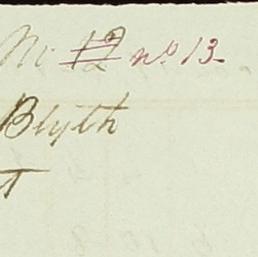 M. 12 nº 13
Blyth